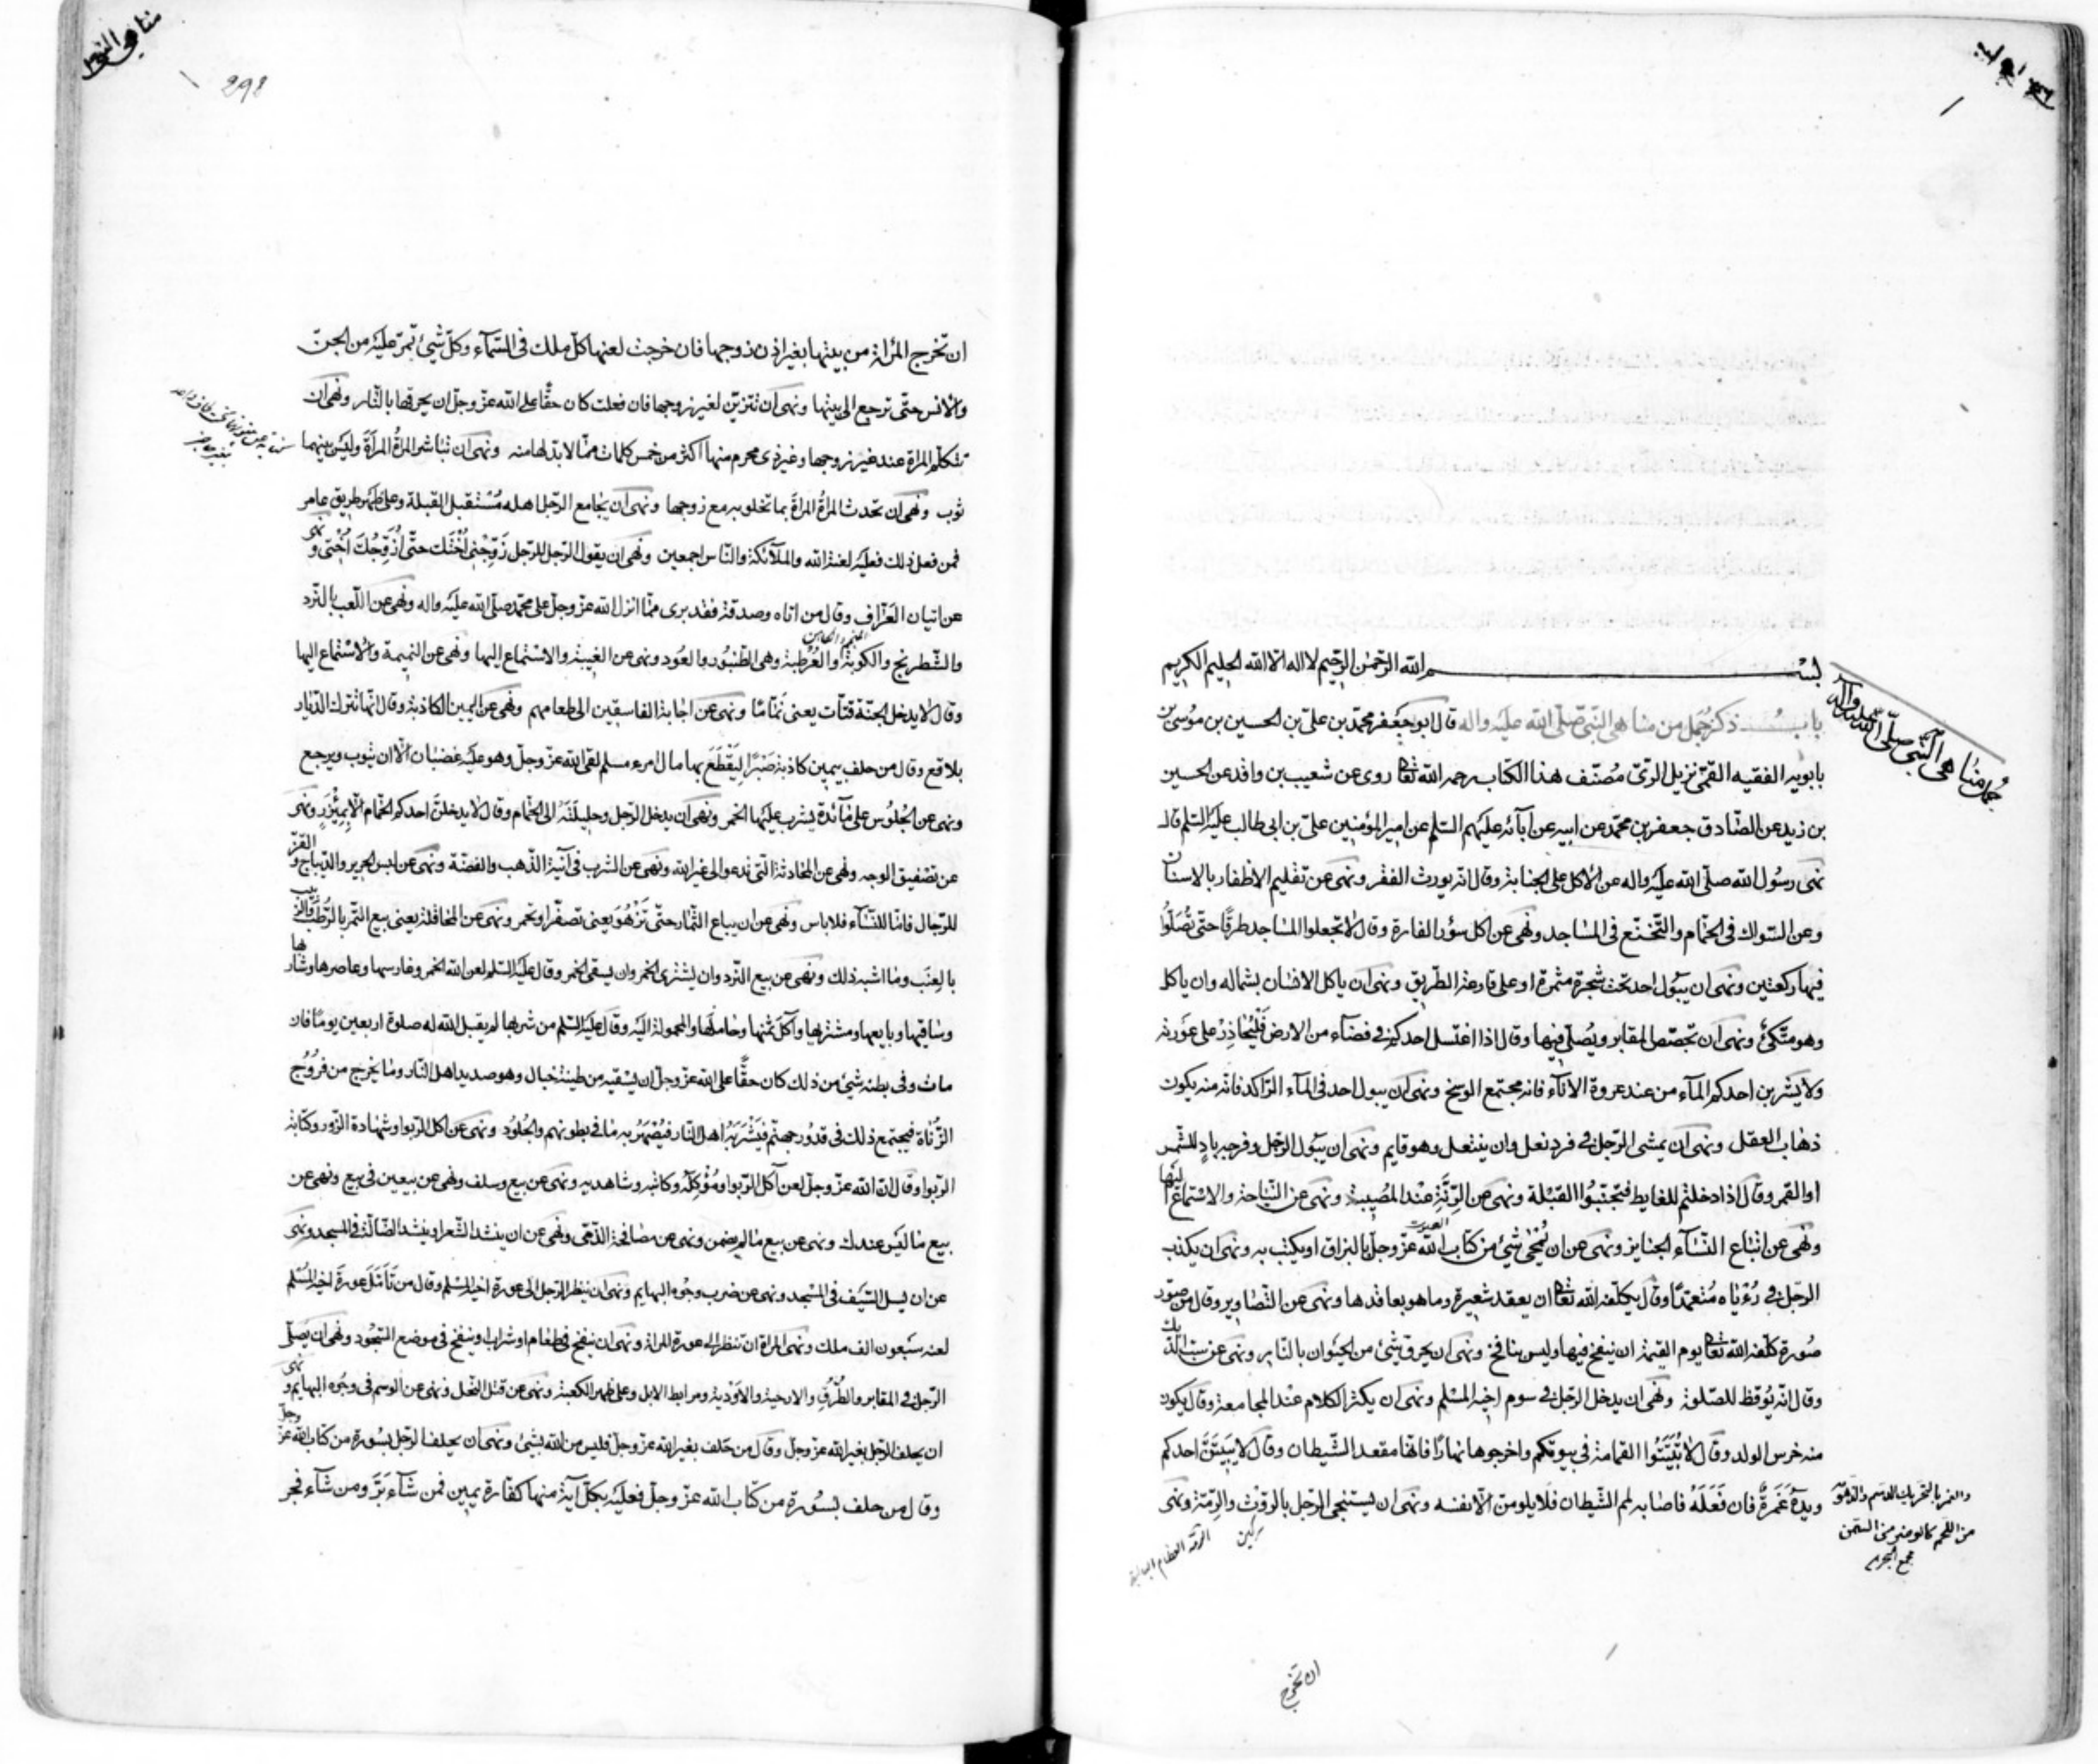 بسم الله الرحمن الرحيم لا اله الا الله الحليم الكريم
جمل مناهى النبى صلى الله عليه واله
باب ذكر جمل من مناهى النبى صلى الله عليه واله قال ابو جعفر محمد بن على بن الحسين بن موسى بن
بابويه الفقيه القمى نزيل الرى مصنف هذا الكتاب رحمه الله تعالى روى عن شعيب بن واقد عن الحسين
بن زيد عن الصادق جعفر بن محمد عن ابيه عن آبائه عليهم السلم عن امير المؤمنين على بن ابى طالب عليه السلم قال
نهى رسول الله صلى الله عليه واله عن الاكل على الجنابة وقال انه يورث الفقر ونهى عن تقليم الاظفار بالاسنان
وعن السواك فى الحمام والتنخع فى المساجد ونهى عن اكل سؤر الفارة وقال لا تجعلوا المساجد طرقا حتى تصلوا
فيها ركعتين ونهى ان يبول احد تحت شجرة مثمرة او على قارعة الطريق ونهى ان ياكل الانسان بشماله وان ياكل
وهو متكئ ونهى ان تجصص المقابر ويصلى فيها وقال اذا اغتسل احدكم فى فضآء من الارض فليحاذر على عورته
ولا يشربن احدكم المآء من عند عروة الانآء فانه مجتمع الوسخ ونهى ان يبول احد فى المآء الراكد فانه منه يكون
ذهاب العقل ونهى ان يمشى الرجل فى فرد نعل وان يتنعل وهو قايم ونهى ان يبول الرجل وفرجه باد للشمس
او القمر وقال اذا دخلتم للغايط فتجنبوا القبلة ونهى عن الرنة عند المصيبة ونهى عن النياحة والاستماع اليها
ونهى عن اتباع النسآء الجنايز ونهى عن ان يمحى شيئ من كتاب الله عز وجل بالبزاق او يكتب به ونهى ان يكذب
الرجل فى رؤياه متعمدا وقال يكلفه الله تعالى ان يعقد شعيرة وما هو بعاقدها ونهى عن التصاوير وقال من صور
صورة كلفه الله تعالى يوم القيمة ان ينفخ فيها وليس بنافخ ونهى ان يحرق شيئ من الحيوان بالنار ونهى عن سب الديك
وقال انه يوقظ للصلوة ونهى ان يدخل الرجل فى سوم اخيه المسلم ونهى ان يكثر الكلام عند المجامعة وقال يكون
منه خرس الولد وقال لا تبيتوا القمامة فى بيوتكم واخرجوها نهارا فانها مقعد الشيطان وقال لا يبيتن احدكم
ويده غمرة فان فعله فاصابه لمم الشيطان فلا يلومن الا نفسه ونهى ان يستنجى الرجل بالروث والرمة ونهى
والغمر بالتحريك الدسم والزهومة
من اللحم كالوضر من السمن
مجمع البحرين
سركين
الرمة العظام البالية
ان تخرج
مناهى النبى
298
ان تخرج المرأة من بيتها بغير اذن زوجها فان خرجت لعنها كل ملك فى السمآء وكل شيئ تمر عليه من الجن
والانس حتى ترجع الى بيتها ونهى ان تتزين لغير زوجها فان فعلت كان حقا على الله عز وجل ان يحرقها بالنار ونهى ان
تتكلم المراة عند غير زوجها وغير ذى محرم منها اكثر من خمس كلمات مما لا بد لها منه ونهى ان تباشر المراة المرأة وليس بينهما
ثوب ونهى ان تحدث المراة المراة بما تخلو به مع زوجها ونهى ان يجامع الرجل اهله مستقبل القبلة وعلى ظهر طريق عامر
فمن فعل ذلك فعليه لعنة الله والملآئكة والناس اجمعين ونهى ان يقول الرجل للرجل زوجنى اختك حتى ازوجك اختى ونهى
عن اتيان العراف وقال من اتاه وصدقه فقد برى مما انزل الله عز وجل على محمد صلى الله عليه واله ونهى عن اللعب بالنرد
والشطرنج والكوبة والعرطبة وهى الطنبور والعود ونهى عن الغيبة والاستماع اليها ونهى عن النميمة والاستماع اليها
وقال لا يدخل الجنة قتات يعنى نماما ونهى عن اجابة الفاسقين الى طعامهم ونهى عن اليمين الكاذبة وقال انها تترك الديار
بلاقع وقال من حلف بيمين كاذبة صبرا ليقطع بها مال امرء مسلم لقى الله عز وجل وهو عليه غضبان الا ان يتوب ويرجع
ونهى عن الجلوس على مآئدة يشرب عليها الخمر ونهى ان يدخل الرجل حليلته الى الحمام وقال لا يدخلن احدكم الحمام الا بمئزر ونهى
عن تصفيق الوجه ونهى عن المحادثة التى تدعو الى غير الله ونهى عن الشرب فى آنية الذهب والفضة ونهى عن لبس الحرير والديباج والقز
للرجال فاما للنسآء فلا باس ونهى عن ان يباع الثمار حتى تزهو يعنى تصفر او تحمر ونهى عن المحاقلة يعنى بيع التمر بالرطب والزبيب
بالعنب وما اشبه ذلك ونهى عن بيع النرد وان يشترى الخمر وان يسقى الخمر وقال عليه السلم لعن الله الخمر وغارسها وعاصرها وشاربها
وساقيها وبايعها ومشتريها وآكل ثمنها وحاملها والمحمولة اليه وقال عليه السلم من شربها لم يقبل الله له صلوة اربعين يوما فان
مات وفى بطنه شيئ من ذلك كان حقا على الله عز وجل ان يسقيه من طينة خبال وهو صديد اهل النار وما يخرج من فروج
الزناة فيجتمع ذلك فى قدور جهنم فيشربه اهل النار فيصهر به ما فى بطونهم والجلود ونهى عن اكل الربوا وشهادة الزور وكتابة
الربوا وقال ان الله عز وجل لعن آكل الربوا ومؤكله وكاتبه وشاهديه ونهى عن بيع وسلف ونهى عن بيعين فى بيع ونهى عن
بيع ما ليس عندك ونهى عن بيع ما لم يضمن ونهى عن مصافحة الذمى ونهى عن ان ينشد الشعر او ينشد الضالة فى المسجد ونهى
عن ان يسل السيف فى المسجد ونهى عن ضرب وجوه البهايم ونهى ان ينظر الرجل الى عورة اخيه المسلم وقال من تأمل عورة اخيه المسلم
لعنه سبعون الف ملك ونهى المراة ان تنظر الى عورة المراة ونهى ان ينفخ فى طعام او شراب او ينفخ فى موضع السجود ونهى ان يصلى
الرجل فى المقابر والطرق والارحية والاودية ومرابط الابل وعلى ظهر الكعبة ونهى عن قتل النحل ونهى عن الوسم فى وجوه البهايم ونهى
ان يحلف الرجل بغير الله عز وجل وقال من حلف بغير الله عز وجل فليس من الله بشيئ ونهى ان يحلف الرجل بسورة من كتاب الله عز وجل
وقال من حلف بسورة من كتاب الله عز وجل فعليه بكل آية منها كفارة يمين فمن شآء بر ومن شآء فجر